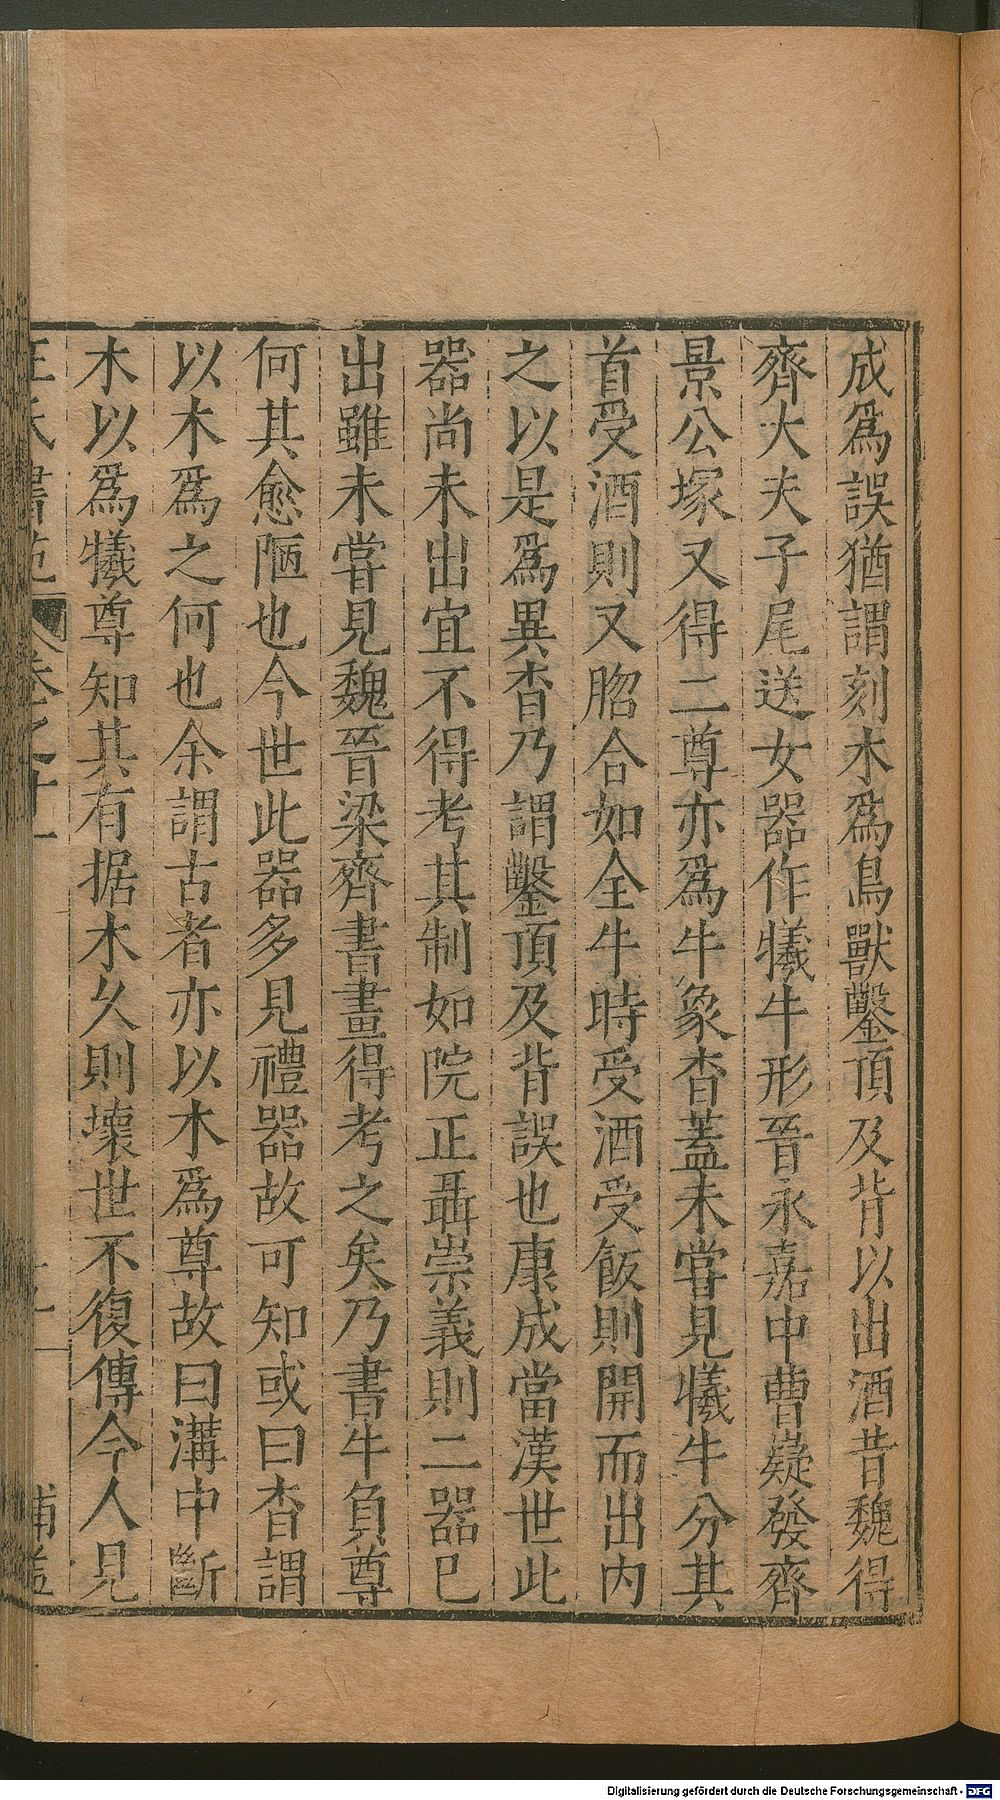 成爲誤猶謂刻木爲鳥獸鑿頂及背以出酒昔魏得
齊大夫子尾送女器作犧牛形晉永嘉中曹嶷發齊
景公塚又得二尊亦爲牛象杳蓋未嘗見犧牛分其
首受酒則又脗合如全牛時受酒受飯則開而出内
之以是爲異杳乃謂鑿頂及背誤也康成當漢世此
器尚未出宜不得考其制如院正聶崇義則二器已
出雖未嘗見魏晉梁齊書畫得考之矣乃書牛負尊
何其愈陋也今世此器多見禮器故可知或曰杳謂
以木爲之何也余謂古者亦以木爲尊故曰溝中斷
木以爲犧尊知其有据木久則壞世不復傳今人見
Digitalisierung gefördert durch die Deutsche Forschungsgemeinschaft - DFG